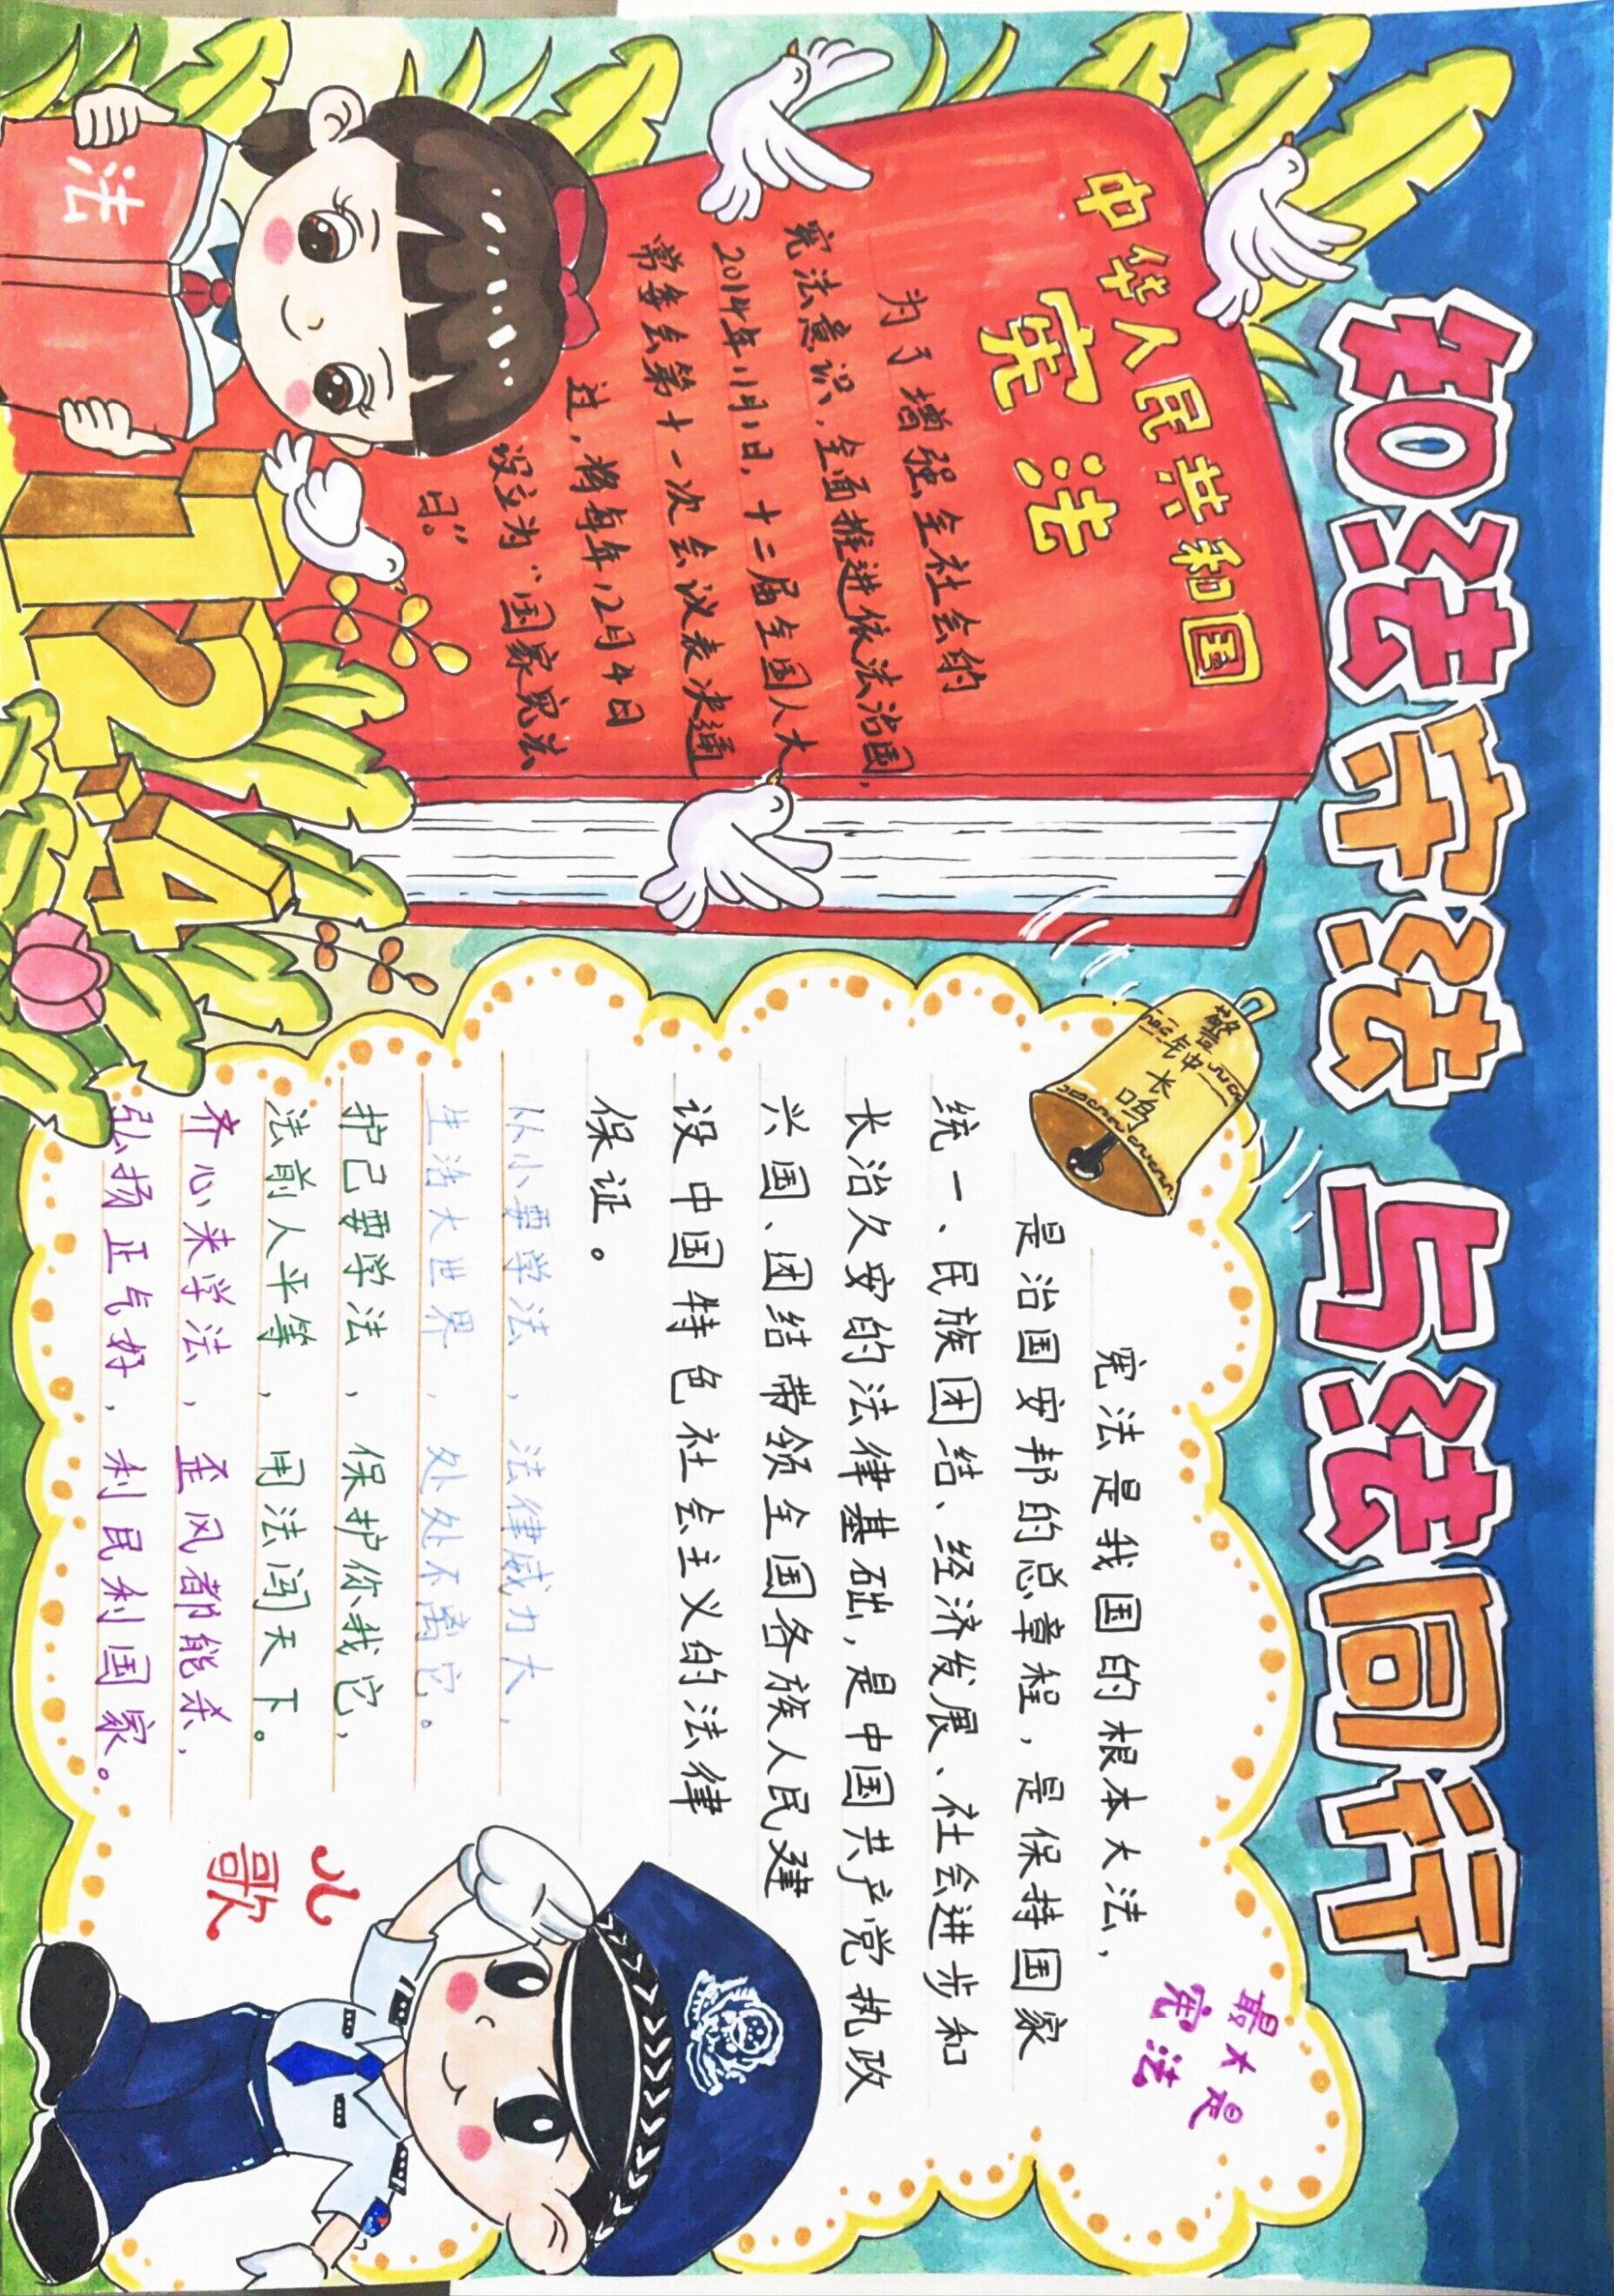 知法守法 与法同行
中华人民共和国
宪法
为了增强全社会的
宪法意识,全面推进依法治国,
2014年11月1日,十二届全国人大
常委会第十一次会议表决通
过,将每年12月4日
设立为“国家宪法
日。”
法
12.4
警钟长鸣
最大是
宪法
宪法是我国的根本大法,
是治国安邦的总章程,是保持国家
统一、民族团结、经济发展、社会进步和
长治久安的法律基础,是中国共产党执政
兴国、团结带领全国各族人民建
设中国特色社会主义的法律
保证。
从小要学法,法律威力大,
生活大世界,处处不离它。
护己要学法,保护你我它,
法前人平等,用法闯天下。
齐心来学法,歪风都能杀,
弘扬正气好,利民利国家。
儿
歌